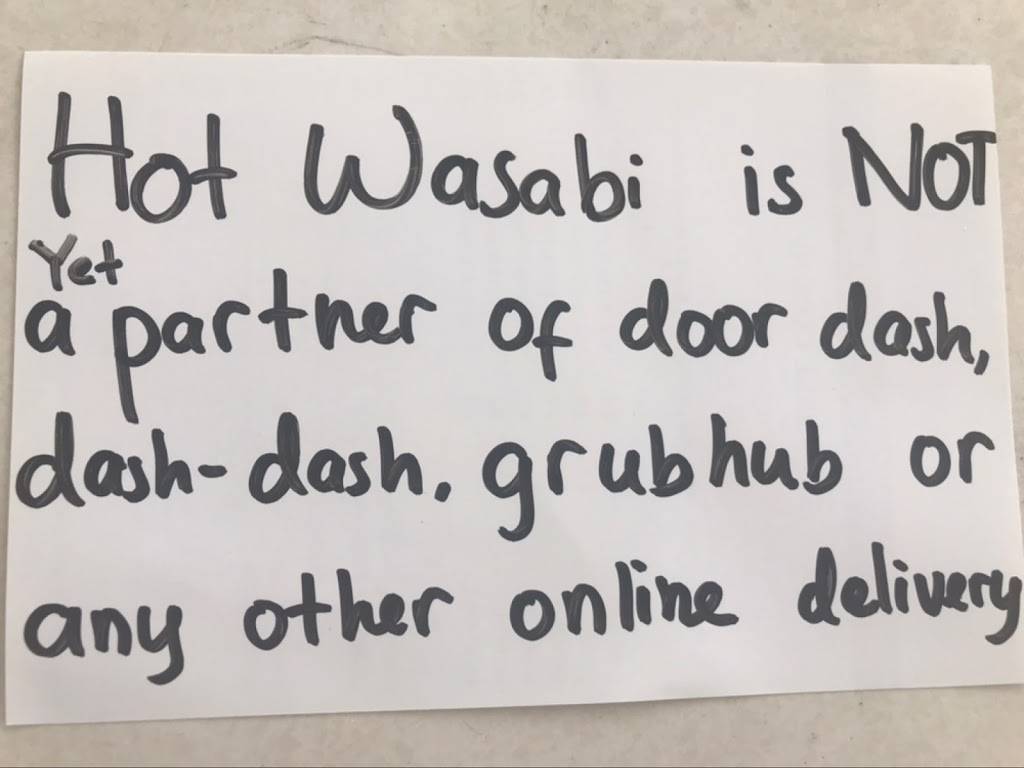 Hot Wasabi is NOT
Yet
a partner of door dash,
dash-dash. grubhub or
any other online delivery